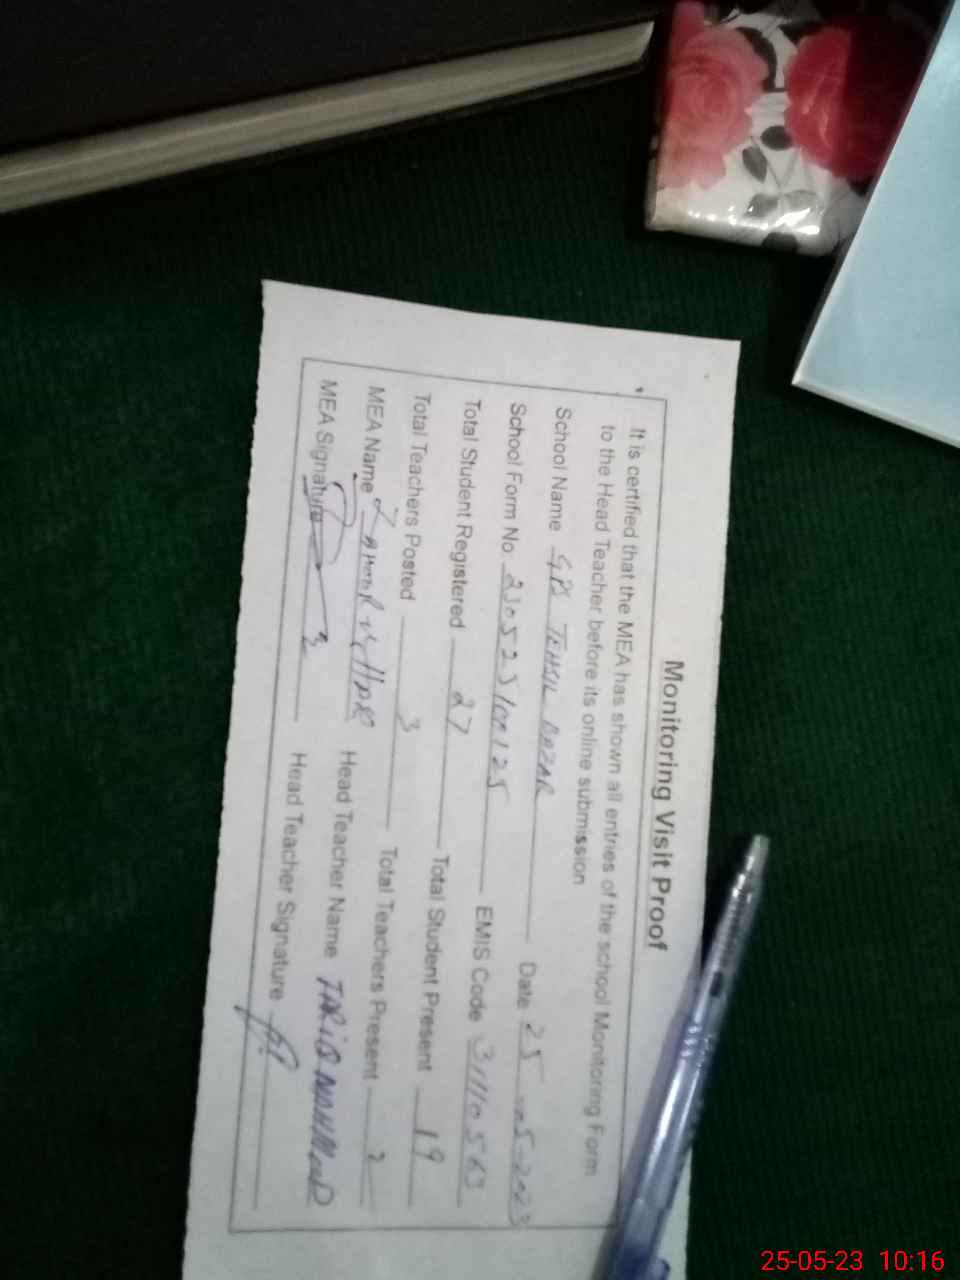 Monitoring Visit Proof
It is certified that the MEA has shown all entries of the school Monitoring Form
to the Head Teacher before its online submission
School Name GPS TEHSIL BAZAR Date 25-05-2023
School Form No. EMIS Code 31110563
Total Student Registered 27 Total Student Present 19
Total Teachers Posted 3 Total Teachers Present 2
MEA Name Head Teacher Name TARIQ MAHMOOD
MEA Signature Head Teacher Signature
25-05-23 10:16